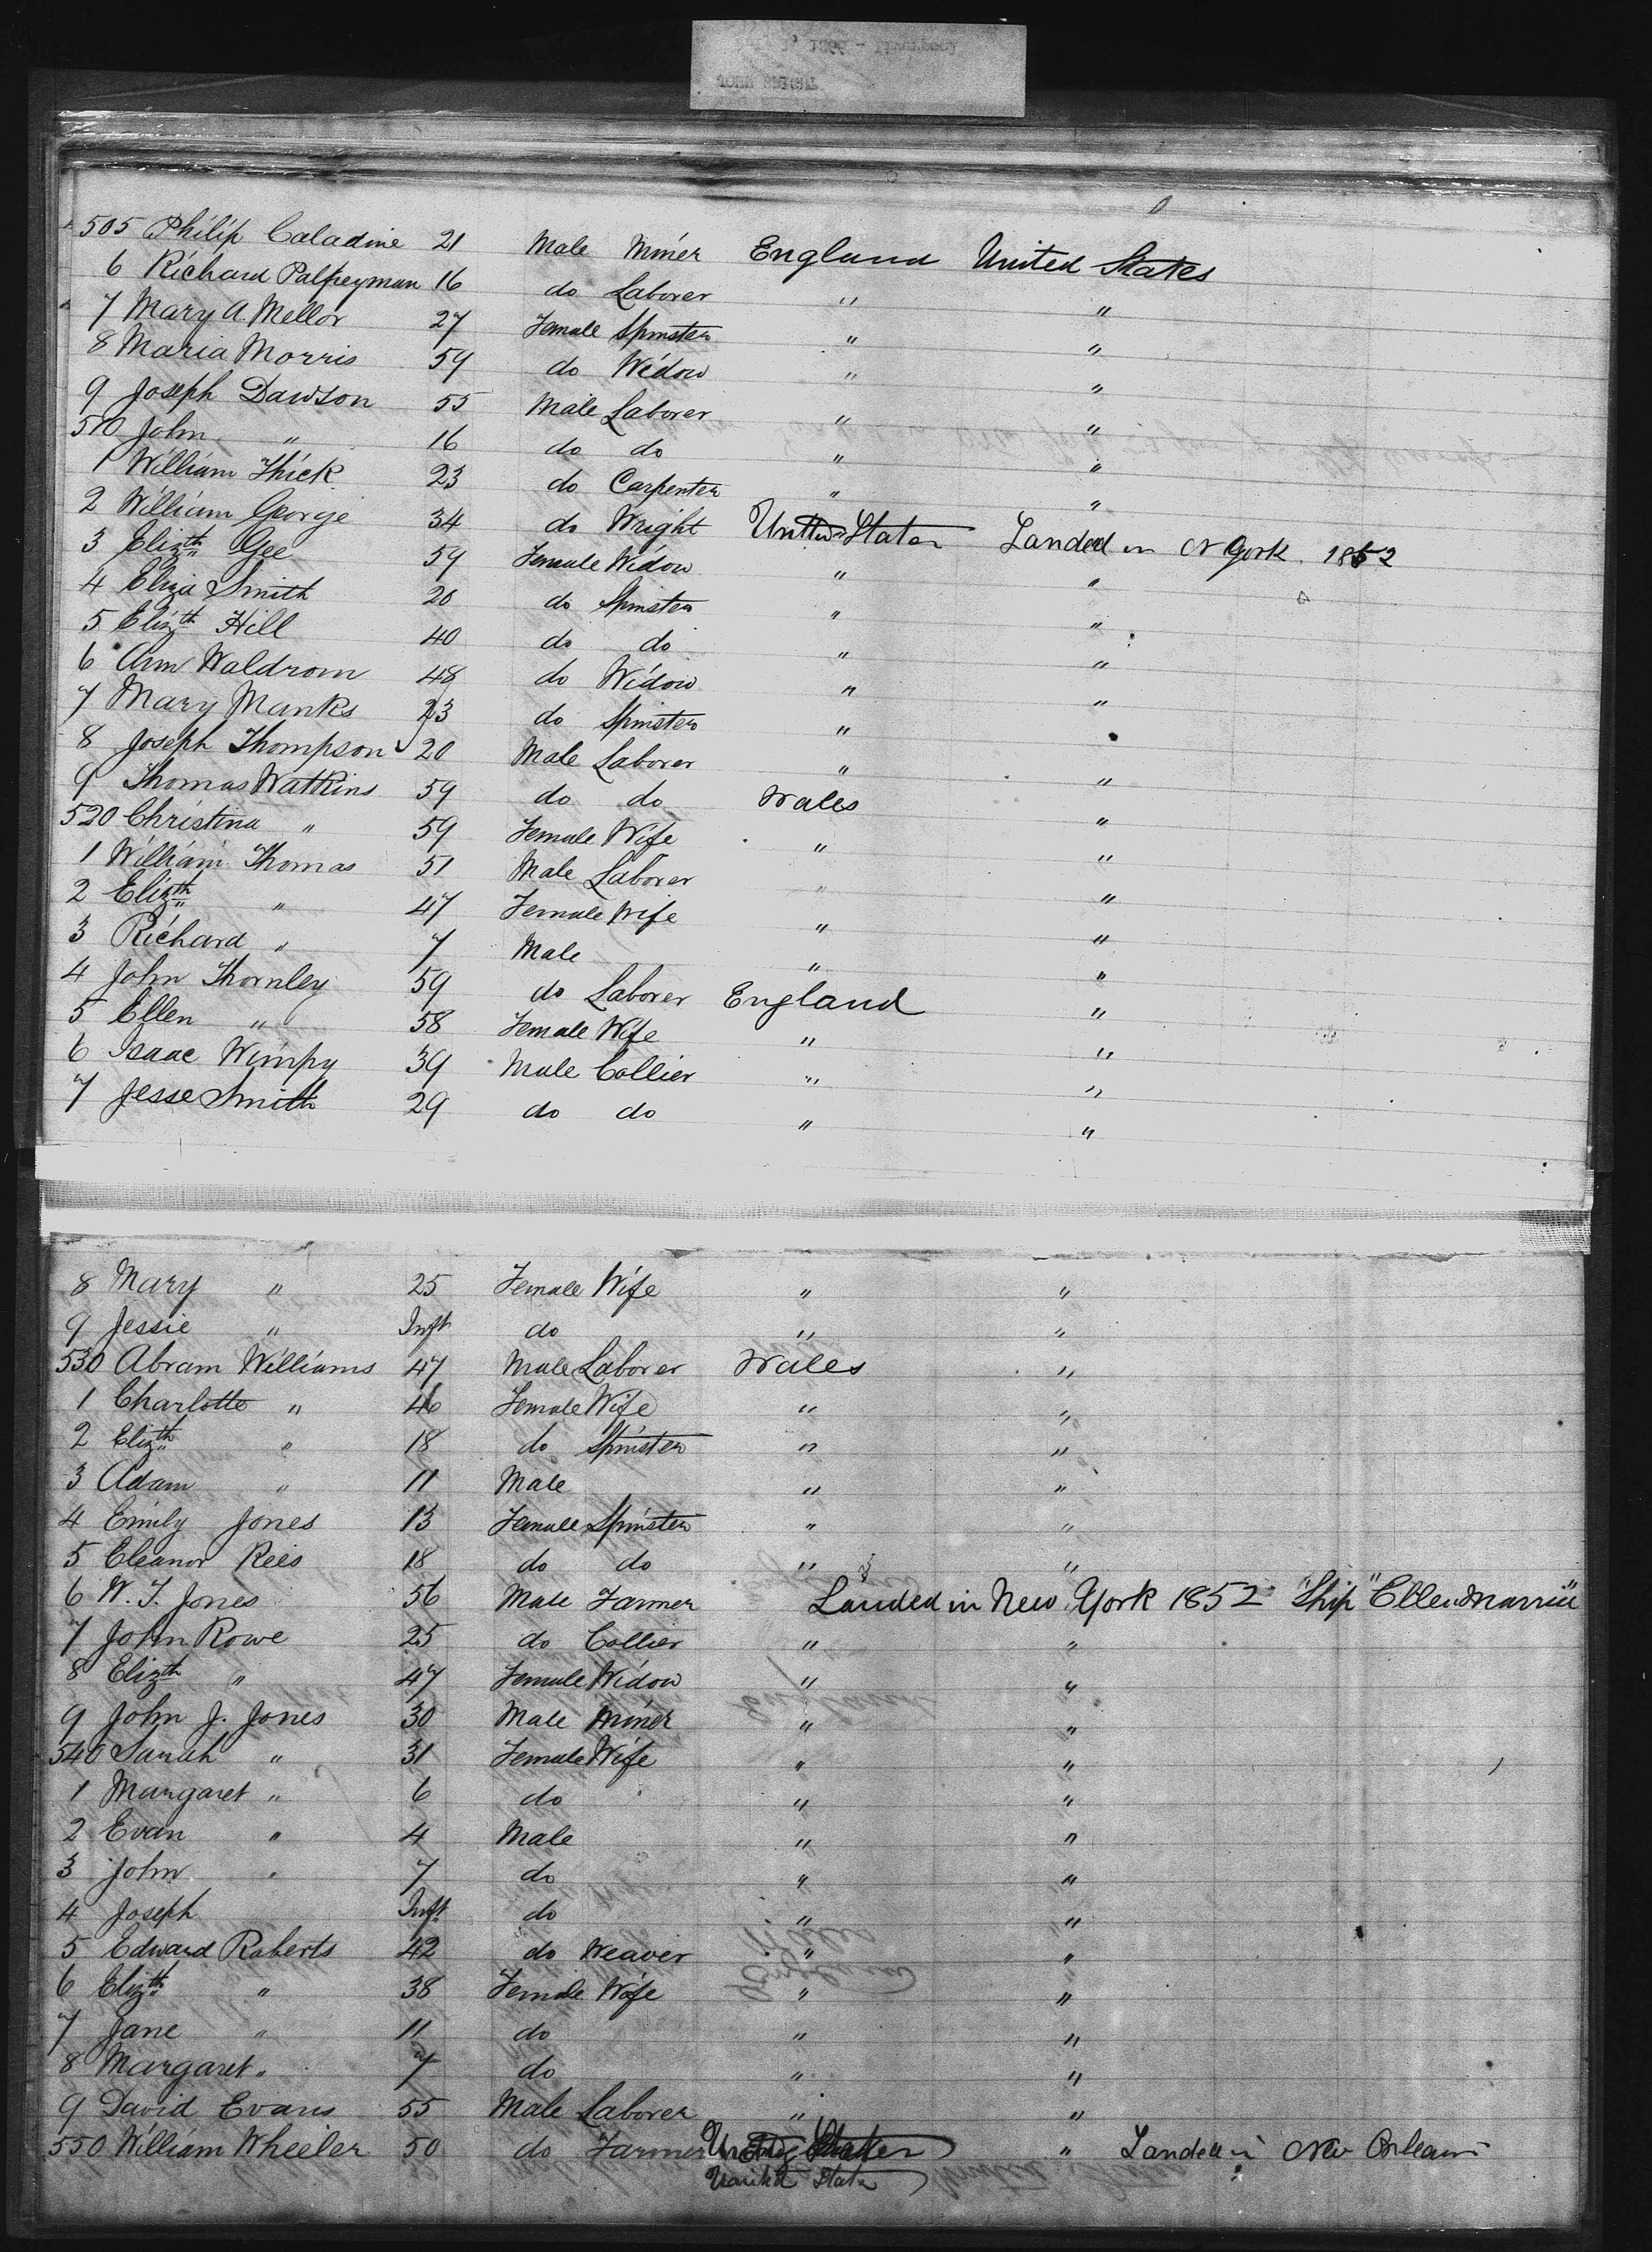 505 Philip Caladine 21 Male Miner England United States
6 Richard Palfreyman 16 do Laborer " "
7 Mary A. Mellor 27 Female Spinster " "
8 Maria Morris 59 do Widow " "
9 Joseph Dawson 55 Male Laborer " "
510 John " 16 do do " "
1 William Thick 23 do Carpenter " "
2 William George 34 do Wright United States Landed in N York. 1852
3 Elizth Gee 59 Female Widow " "
4 Eliza Smith 20 do Spinster " "
5 Elizth Hill 40 do do " "
6 Ann Waldrom 48 do Widow " "
7 Mary Manks 23 do Spinster "
8 Joseph Thompson 20 Male Laborer " "
9 Thomas Watkins 59 do do Wales "
520 Christina " 59 Female Wife " "
1 William Thomas 51 Male Laborer " "
2 Elizth " 47 Female Wife " "
3 Richard " 7 Male " "
4 John Thornley 59 do Laborer England "
5 Ellen " 58 Female Wife " "
6 Isaac Wimpy 39 Male Collier " "
7 Jesse Smith 29 do do " "
8 Mary " 25 Female Wife " "
9 Jessie " Inft do " "
530 Abram Williams 47 Male Laborer Wales "
1 Charlotte " 46 Female Wife " "
2 Elizth " 18 do Spinster " "
3 Adam " 11 Male " "
4 Emily Jones 13 Female Spinster " "
5 Eleanor Rees 18 do do " "
6 W. T. Jones 56 Male Farmer Landed in New York 1852 "Ship "Ellen
7 John Rowe 25 do Collier " "
8 Elizth " 47 Female Widow " "
9 John J. Jones 30 Male Miner " "
540 Sarah " 31 Female Wife " "
1 Margaret " 6 do " "
2 Evan " 4 Male " "
3 John " 7 do " "
4 Joseph Inft do " "
5 Edward Roberts 42 do Weaver " "
6 Elizth " 38 Female Wife " "
7 Jane " 11 do " "
8 Margaret " 7 do " "
9 David Evans 55 Male Laborer " "
550 William Wheeler 50 do Farmer " Landed in New Orleans
United States